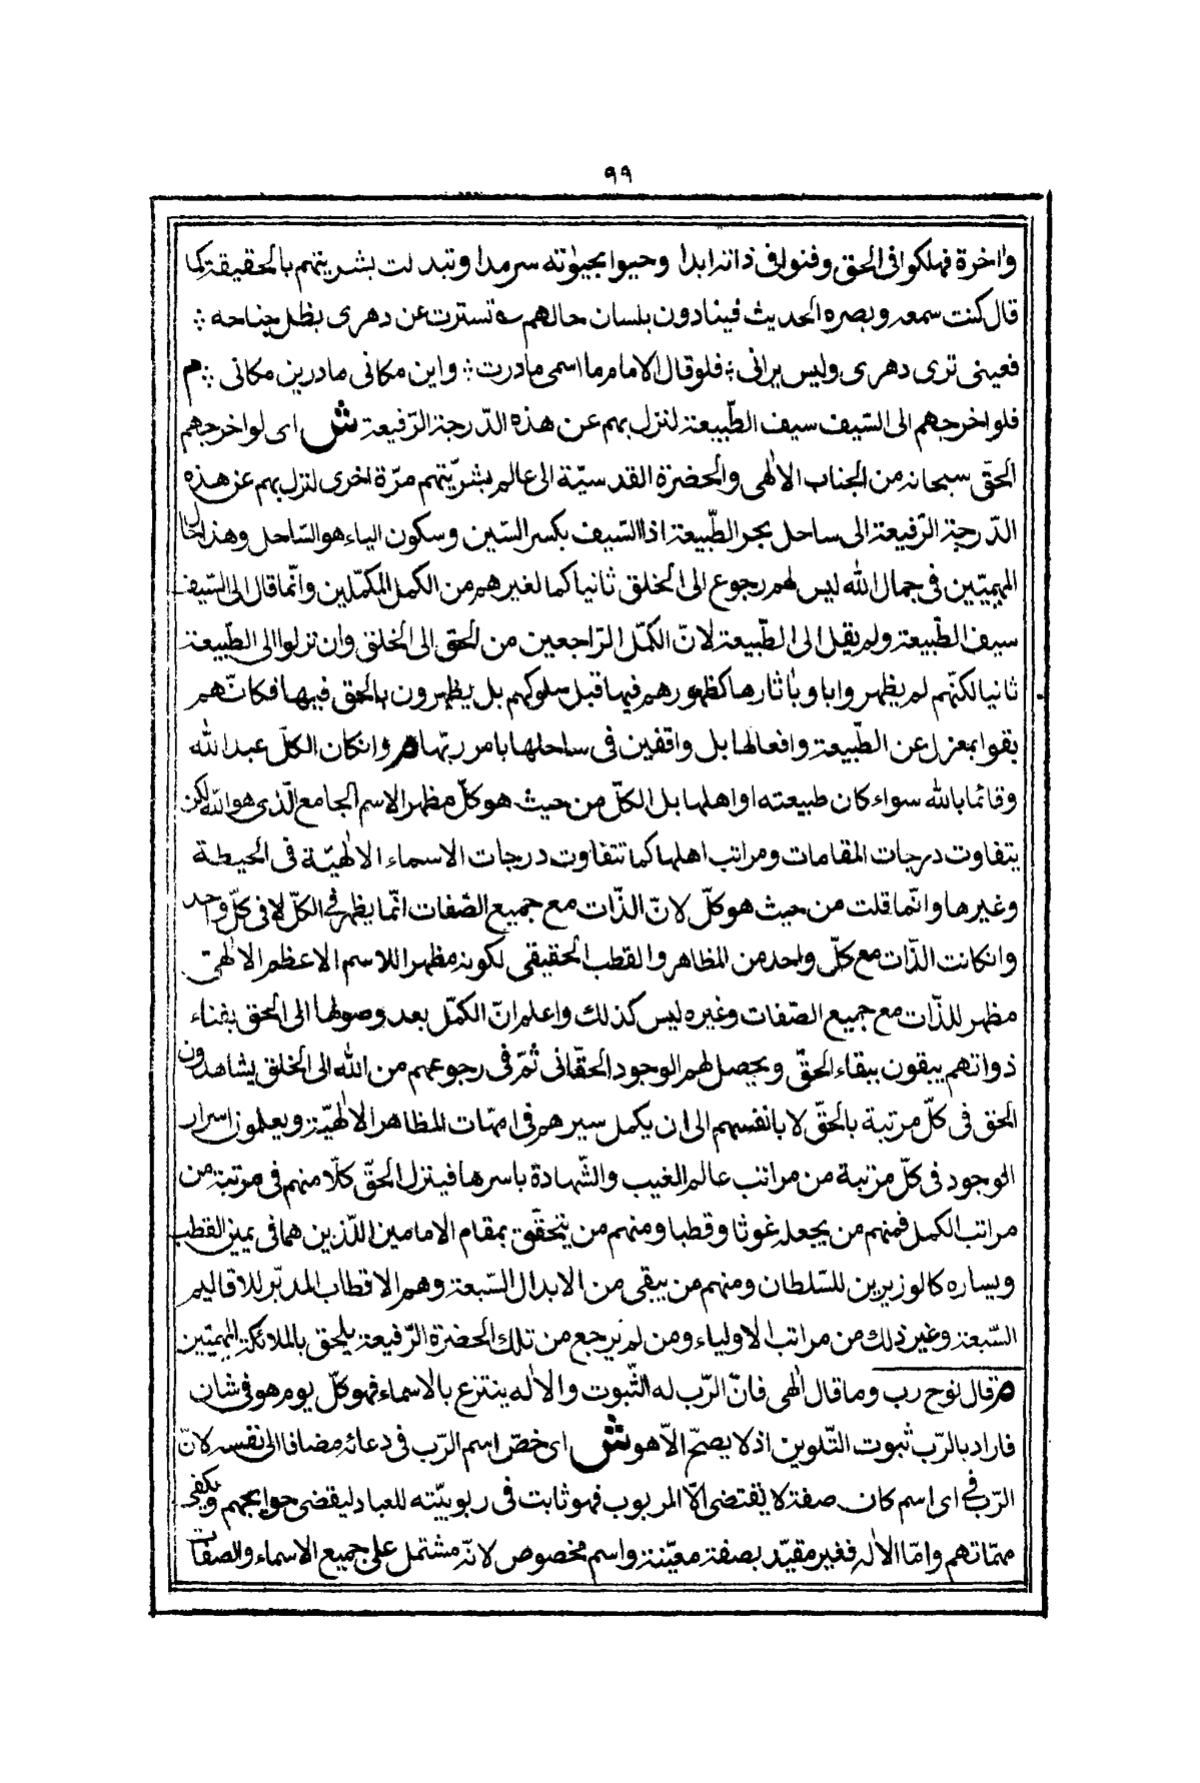 ٩٩
واخرة فهلكوا فى الحق وفنوا فى ذاته ابدا وحيوا بحيوته سرمدا وتبدلت بشريتهم بالحقيقة كما
قال كنت سمعه وبصره الحديث فينادون بلسان حالهم تسترت عن دهرى بظل جناحه ؞
فعينى ترى دهرى وليس يرانى ؞ فلو قال الامام ما اسمى مادرت ؞ واين مكانى مادرين مكانى ؞ م
فلو اخرجهم الى السّيف سيف الطّبيعة لنزل بهم عن هذه الدّرجة الرّفيعة ش اى لو اخرجهم
الحقّ سبحانه من الجناب الالٰهى والحضرة القدسيّة الى عالم بشريّتهم مرّة اخرى لنزل بهم عن هذه
الدّرجة الرّفيعة الى ساحل بحر الطّبيعة اذا السّيف بكسر السّين وسكون الياء هو السّاحل وهذا حال
المهيّمين فى جمال الله ليس لهم رجوع الى الخلق ثانيا كما لغيرهم من الكمل المكمّلين وانّما قال الى السّيف
سيف الطّبيعة ولم يقل الى الطّبيعة لانّ الكمّل الرّاجعين من الحق الى الخلق وان نزلوا الى الطّبيعة
ثانيا لكنّهم لم يظهروا بها وبآثارها كظهورهم فيها قبل سلوكهم بل يظهرون بالحق فيها فكانّهم
بقوا بمعزل عن الطّبيعة وافعالها بل واقفين فى ساحلها بامر ربّها م وانكان الكلّ عبدا لله
وقائما بالله سواء كان طبيعته او اهلها بل الكلّ من حيث هو كلّ مظهر الاسم الجامع الّذى هو الله لكن
يتفاوت درجات المقامات ومراتب اهلها كما تتفاوت درجات الاسماء الالٰهيّة فى الحيطة
وغيرها وانّما قلت من حيث هو كلّ لانّ الذّات مع جميع الصّفات انّما يظهر فى الكلّ لا فى كلّ واحد
وانكانت الذّات مع كلّ واحد من المظاهر والقطب الحقيقى لكونه مظهر اللاسم الاعظم الالٰهىّ
مظهر للذّات مع جميع الصّفات وغيره ليس كذلك واعلم انّ الكمّل بعد وصولها الى الحق بفناء
ذواتهم يبقون ببقاء الحقّ ويحصل لهم الوجود الحقّانى ثُمّ فى رجوعهم من الله الى الخلق يشاهدون
الحق فى كلّ مرتبة بالحقّ لا بانفسهم الى ان يكمل سيرهم فى امّهات المظاهر الالٰهيّة ويعلمون اسرار
الوجود فى كلّ مرتبة من مراتب عالم الغيب والشّهادة باسرها فينزل الحقّ كلّا منهم فى مرتبة من
مراتب الكمل فمنهم من يجعله غوثا وقطبا ومنهم من يتحقّق بمقام الامامين اللّذين هما فى يمين القطب
ويساره كالوزيرين للسّلطان ومنهم من يبقى من الابدال السّبعة وهم الاقطاب المدبّر للاقاليم
السّبعة وغير ذلك من مراتب الاولياء ومن لم يرجع من تلك الحضرة الرّفيعة يلحق بالملائكة المهيّمين
م قال نوح رب وما قال الٰهى فانّ الرّب له الثّبوت والاله يتنزع بالاسماء فهو كلّ يوم هو فى شان
فاراد بالرّب ثبوت التّلوين اذ لا يصحّ الّا هو ش اى خصّ اسم الرّب فى دعائه مضافا الى نفسه لانّ
الرّب فى اى اسم كان صفة لا يقتضى الّا المربوب فهو ثابت فى ربوبيّته للعباد ليقضى حوايجهم ويكفى
مهمّاتهم وامّا الالٰه فغير مقيّد بصفة معيّنة واسم مخصوص لانّه مشتمل على جميع الاسماء والصفات